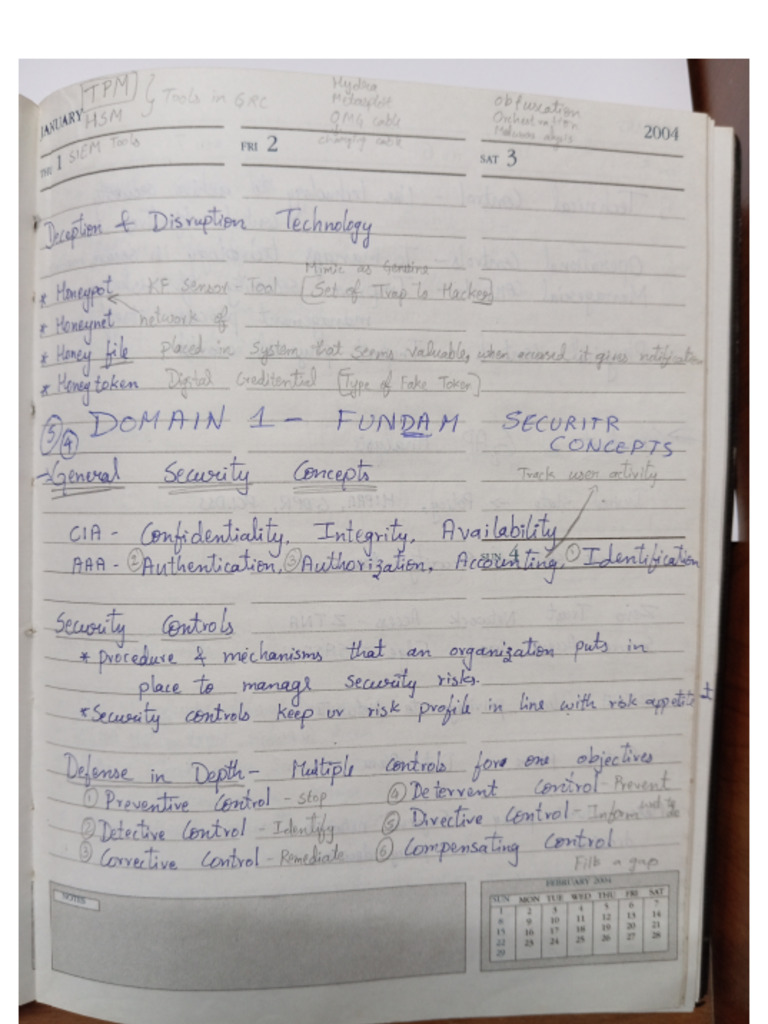 TPM
HSM
Tools in GRC
SIEM Tools
Hydra
Metasploit
OMG cable
changing cable
obfuscation
Malware
JANUARY
2004
THU 1
FRI 2
SAT 3
Deception & Disruption Technology
Mimic as Genuine
* Honeypot KF Sensor - Tool [Set of Trap to Hacker]
* Honeynet network of
* Honey file placed in system that seems valuable, when accessed it gives notification
* Honeytoken Digital Creditential [Type of Fake Token]
⑤ ④ DOMAIN 1 - FUNDAM SECURITR
CONCEPTS
→ General Security Concepts
Track user activity
CIA - Confidentiality, Integrity, Availability
SUN 4
AAA - ② Authentication, ③ Authorization, Accounting, ① Identification
Security Controls
* procedure & mechanisms that an organization puts in
place to manage security risks.
* Security controls keep ur risk profile in line with risk appetite
Defense in Depth - Multiple controls for one objectives
① Preventive Control - Stop
④ Deterrent Control - Prevent
② Detective Control - Identify
⑤ Directive Control - Inform what to do
③ Corrective Control - Remediate
⑥ Compensating Control
Fills a gap
NOTES
FEBRUARY 2004
SUN MON TUE WED THU FRI SAT
1 2 3 4 5 6 7
8 9 10 11 12 13 14
15 16 17 18 19 20 21
22 23 24 25 26 27 28
29